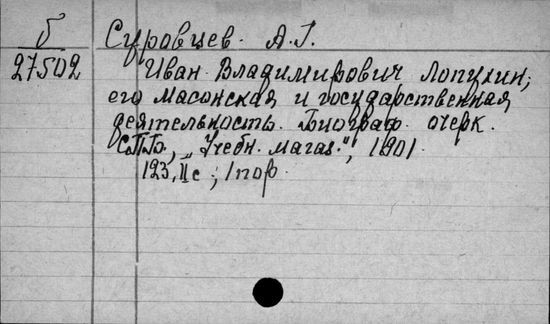 б Суровцев. А.Г.
27502 Иван Владимирович Лопухин;
его масонская и государственная
деятельность. Биограф. очерк.
СПБ., „Учебн. магаз.", 1901.
123, II с; 1 пор.